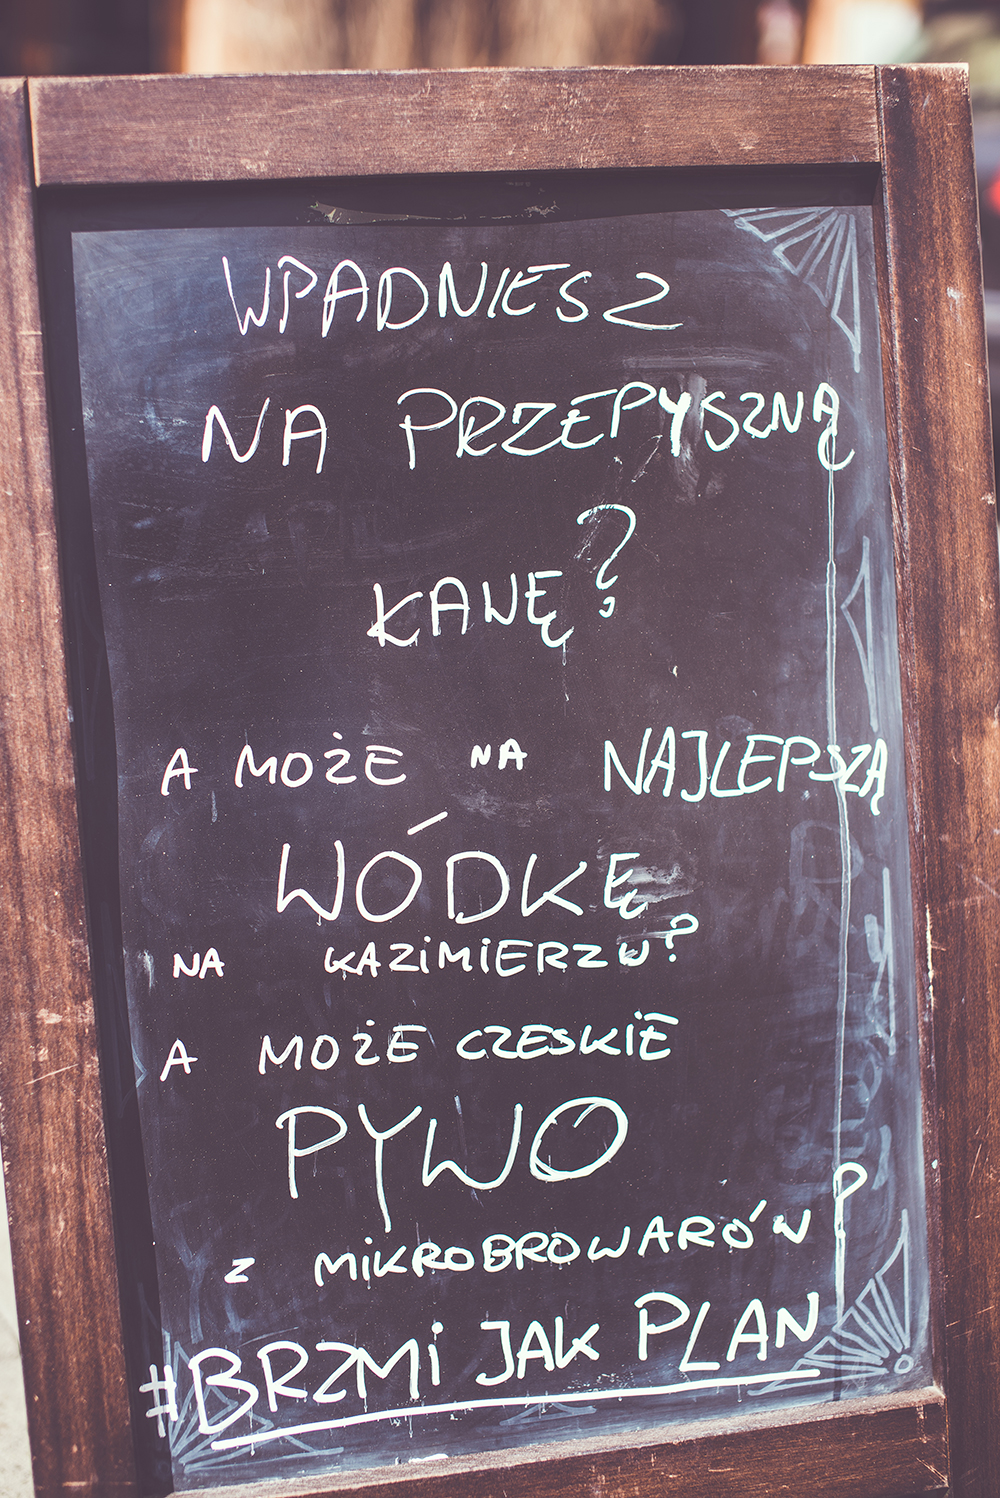 WPADNIESZ
NA PRZEPYSZNĄ
KANĘ?
A MOŻE NA NAJLEPSZĄ
WÓDKĘ
NA KAZIMIERZU?
A MOŻE CZESKIE
PYWO
Z MIKROBROWARÓW?
#BRZMI JAK PLAN